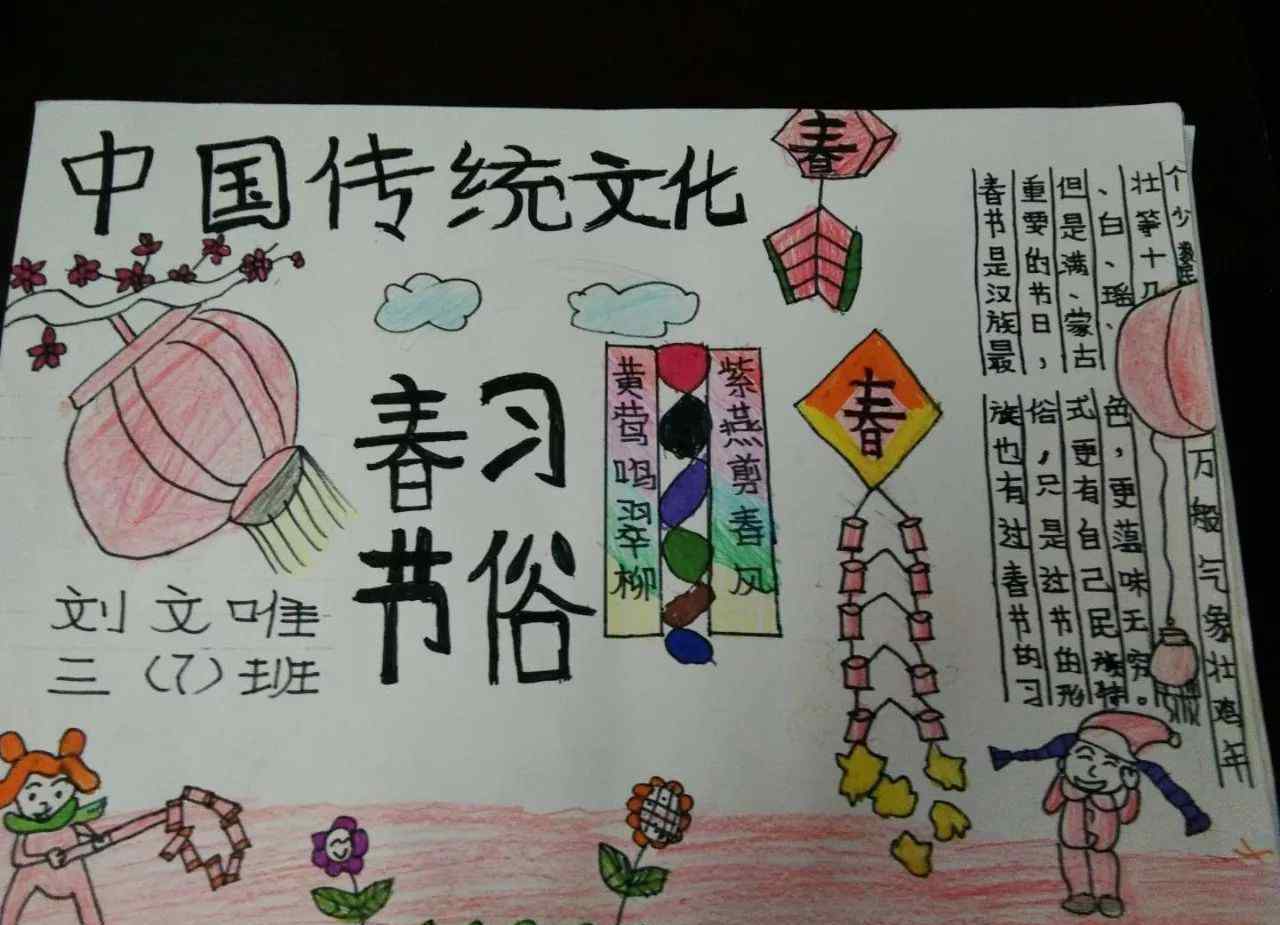 中国传统文化
春
春
春节
习俗
黄莺鸣翠柳
紫燕剪春风
刘文唯
三（7）班
春节是汉族最
重要的节日，
但是满、蒙古
、白、瑶、
壮等十几
个少数民
族也有过春节的习
俗，只是过节的形
式更有自己民族特
色，更蕴味无穷。
万般气象壮鸡年